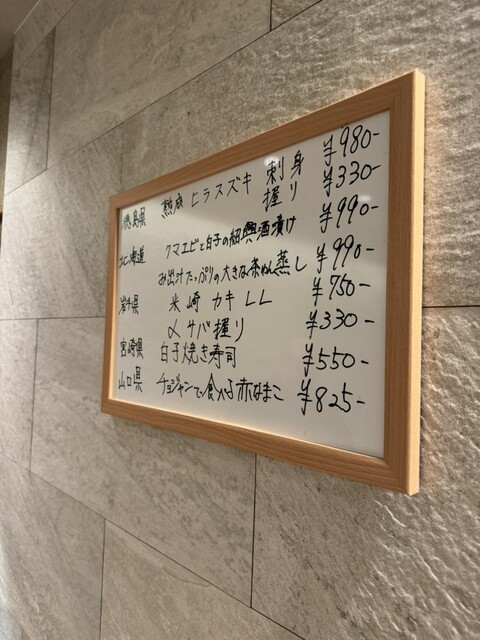 徳島県 熟成 ヒラスズキ 刺身 ¥980-
握り ¥330-
クマエビと白子の紹興酒漬け ¥990-
北海道 み出汁たっぷりの大きな茶わん蒸し ¥990-
岩手県 米崎カキLL ¥750-
〆サバ握り ¥330-
宮崎県 白子焼き寿司 ¥550-
山口県 チョジャンで食べる赤なまこ ¥825-